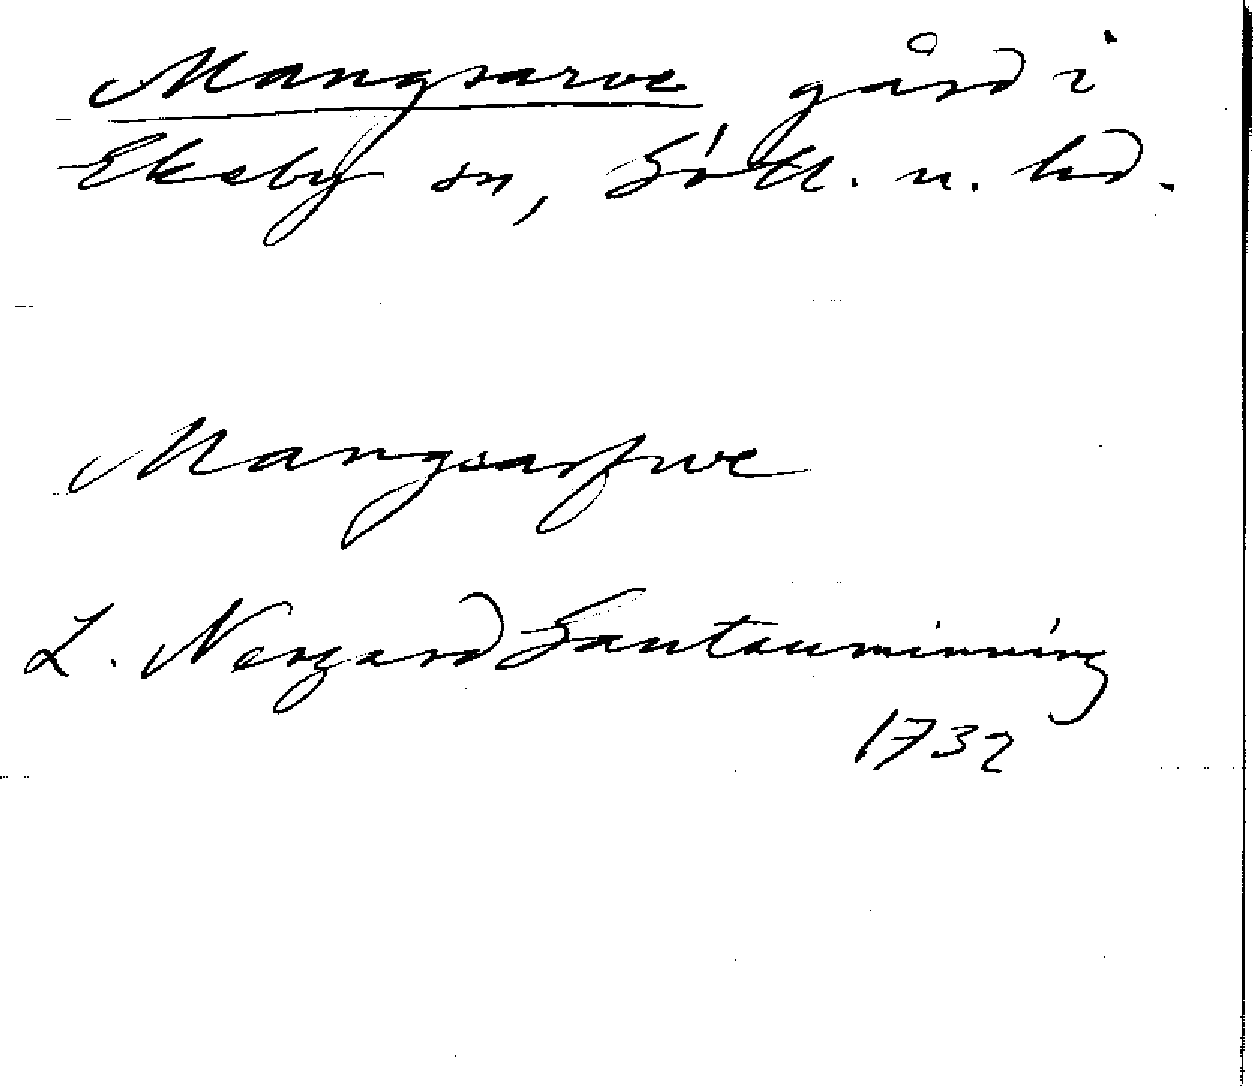 Mangsarve gård i
Eksby sn, Götl. n. hd.
Mangsarfwe
L. Nergard Gautauminning
1732